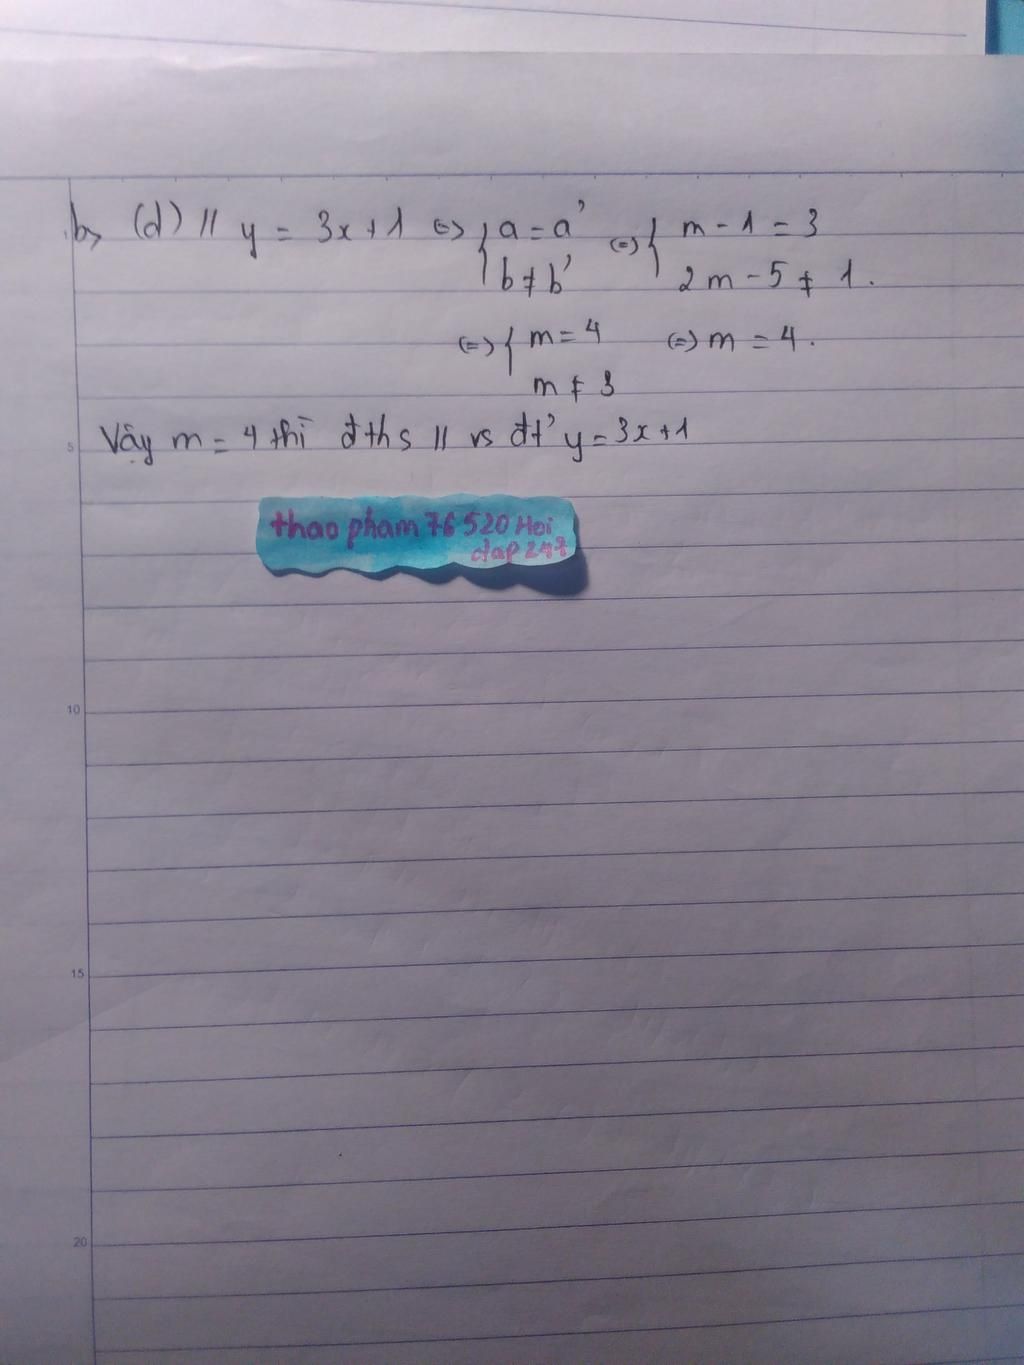 b, (d) // y = 3x+1 <=> { a = a' <=> { m - 1 = 3
b ≠ b' 2m - 5 ≠ 1.
<=> { m = 4 <=> m = 4.
m ≠ 3
Vậy m = 4 thì đths // vs đt' y = 3x+1
5
thao pham 76 520 Hoi
dap 247
10
15
20